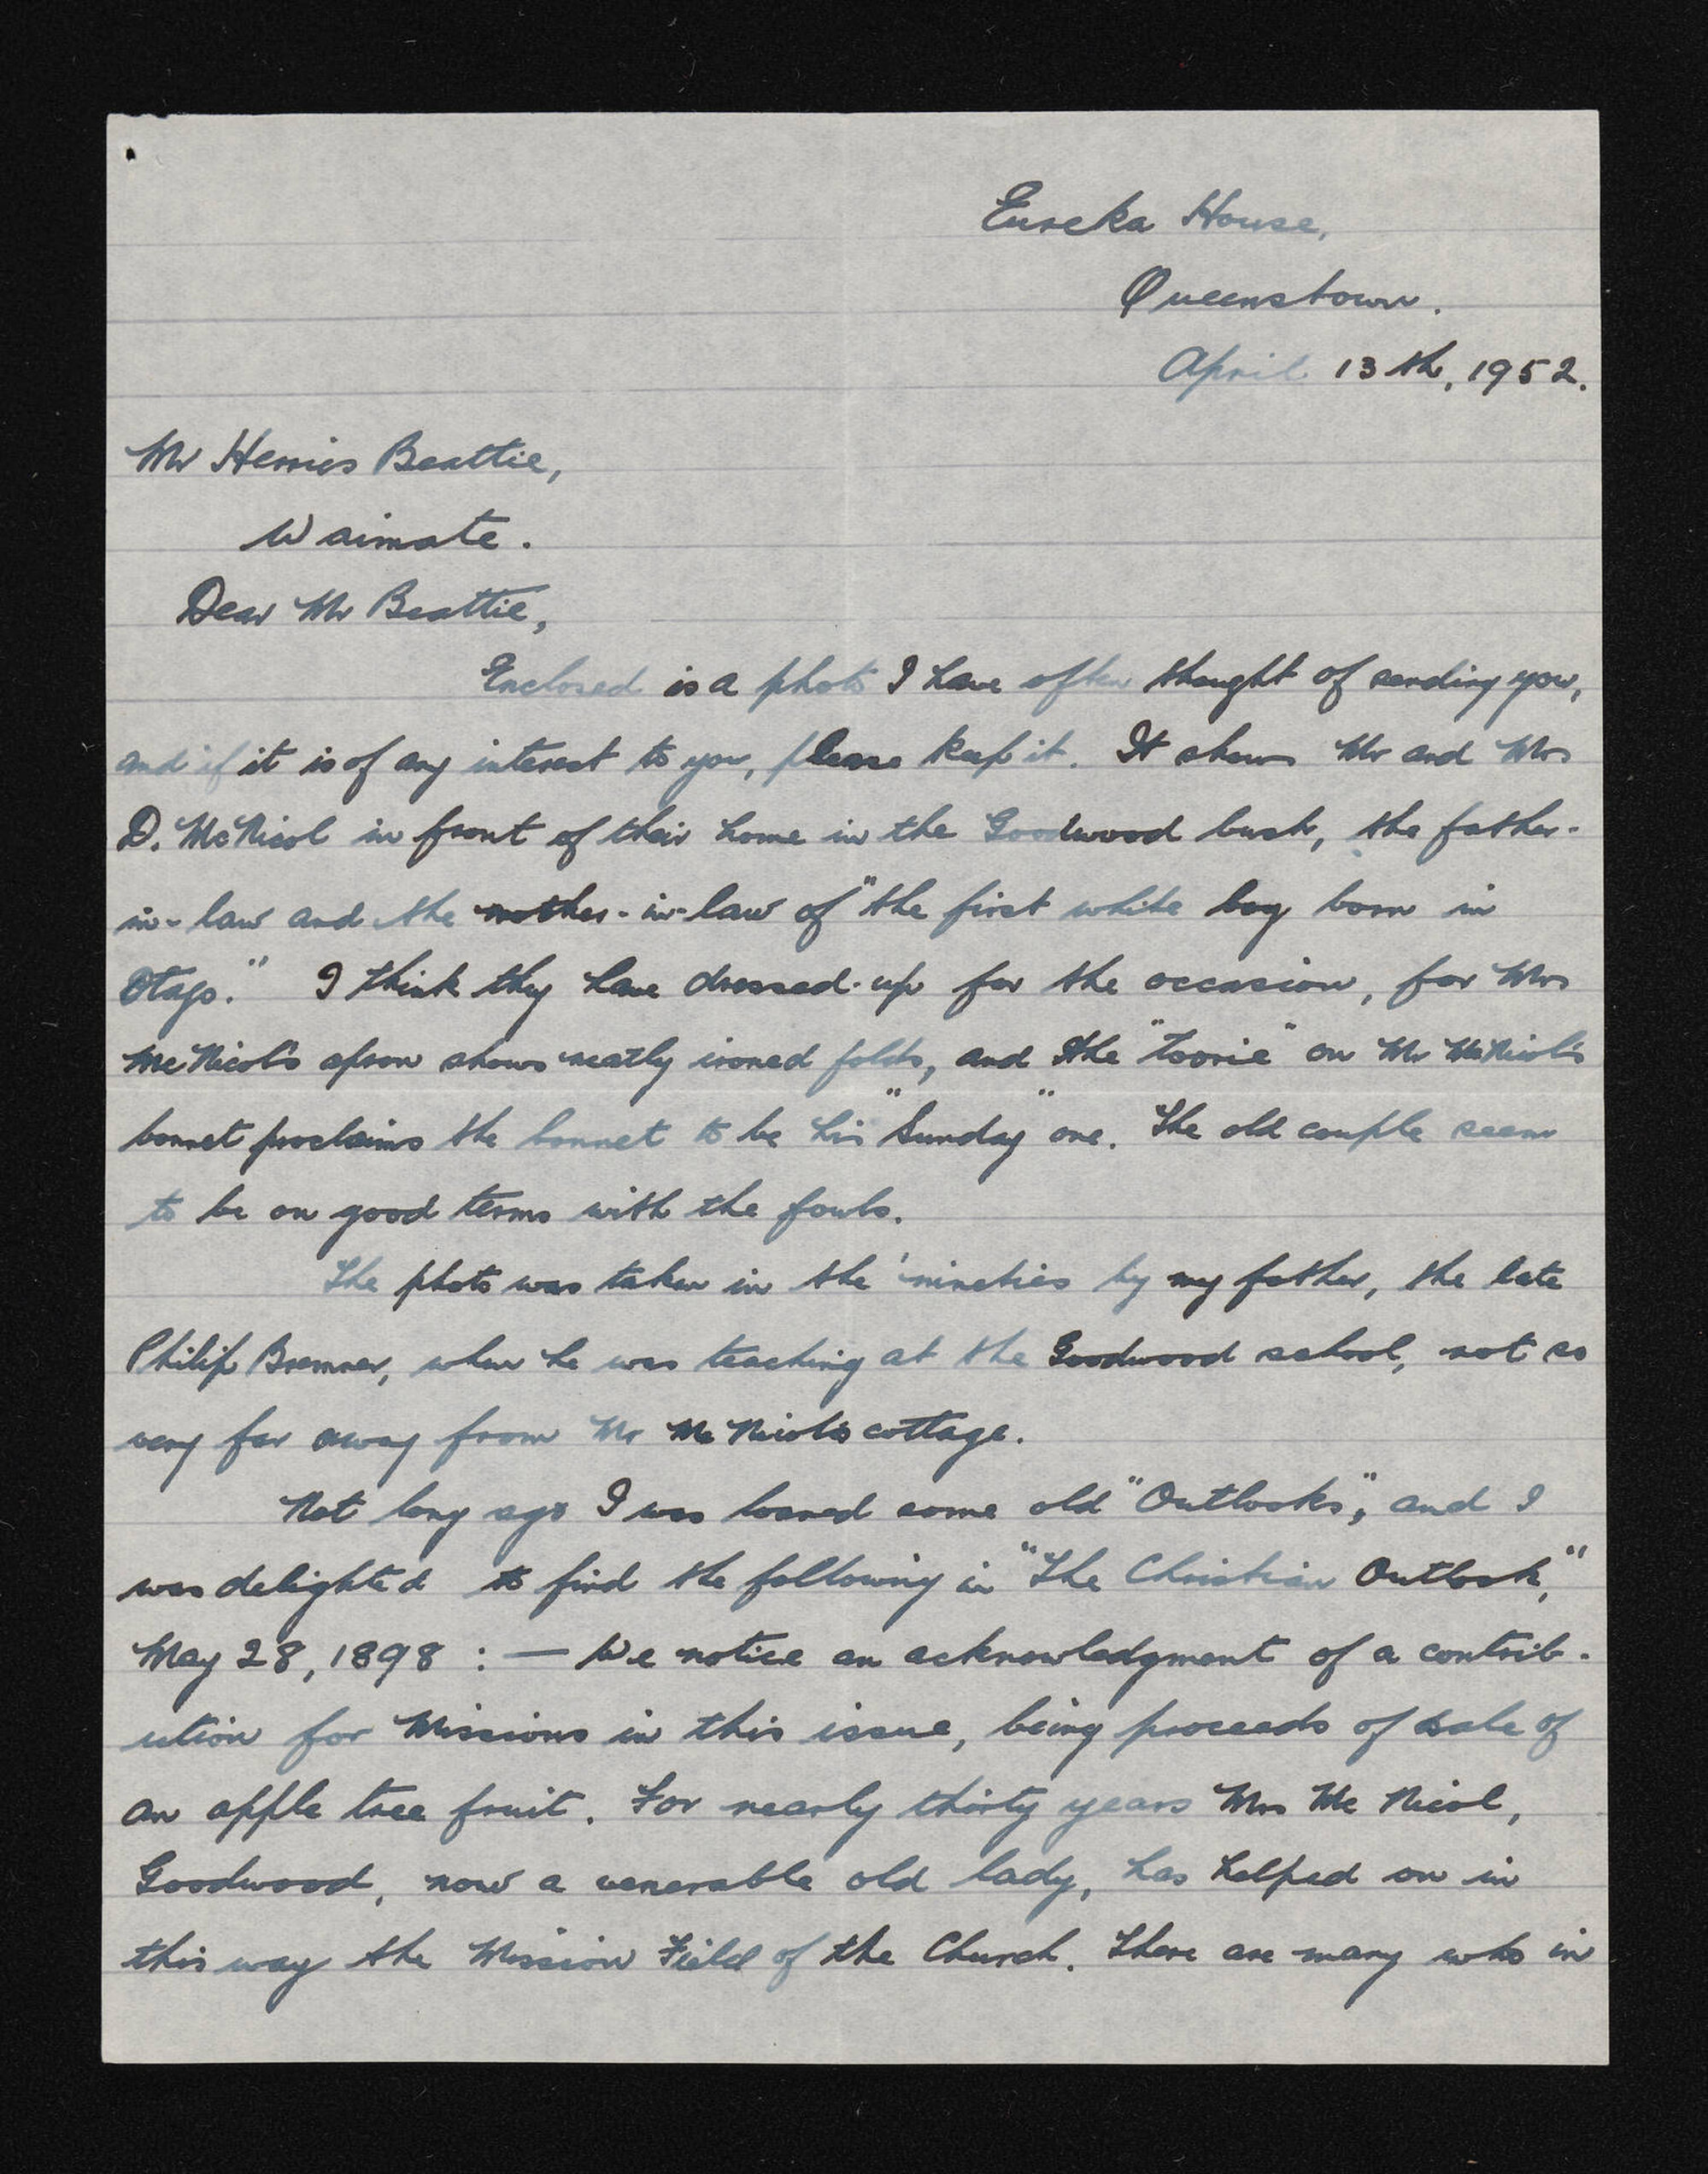 Eureka House,
Queenstown.
April 13th, 1952.
Mr Herries Beattie,
Waimate.
Dear Mr Beattie,
Enclosed is a photo I have often thought of sending you,
and if it is of any interest to you, please keep it. It shows Mr and Mrs
D. McNicol in front of their home in the Goodwood bush, the father-
in-law and the mother-in-law of "the first white boy born in
Otago." I think they have dressed-up for the occasion, for Mrs
McNicol's apron shows neatly ironed folds, and the "toorie" on Mr McNicol's
bonnet proclaims the bonnet to be his "Sunday" one. The old couple seem
to be on good terms with the fowls.
The photo was taken in the 'nineties by my father, the late
Philip Bremner, when he was teaching at the Goodwood school, not so
very far away from Mr McNicol's cottage.
Not long ago I was loaned some old "Outlooks", and I
was delighted to find the following in "The Christian Outlook,"
May 28, 1898 : — We notice an acknowledgment of a contrib-
ution for Missions in this issue, being proceeds of sale of
an apple tree fruit. For nearly thirty years Mrs McNicol,
Goodwood, now a venerable old lady, has helped on in
this way the Mission Field of the Church. There are many who in